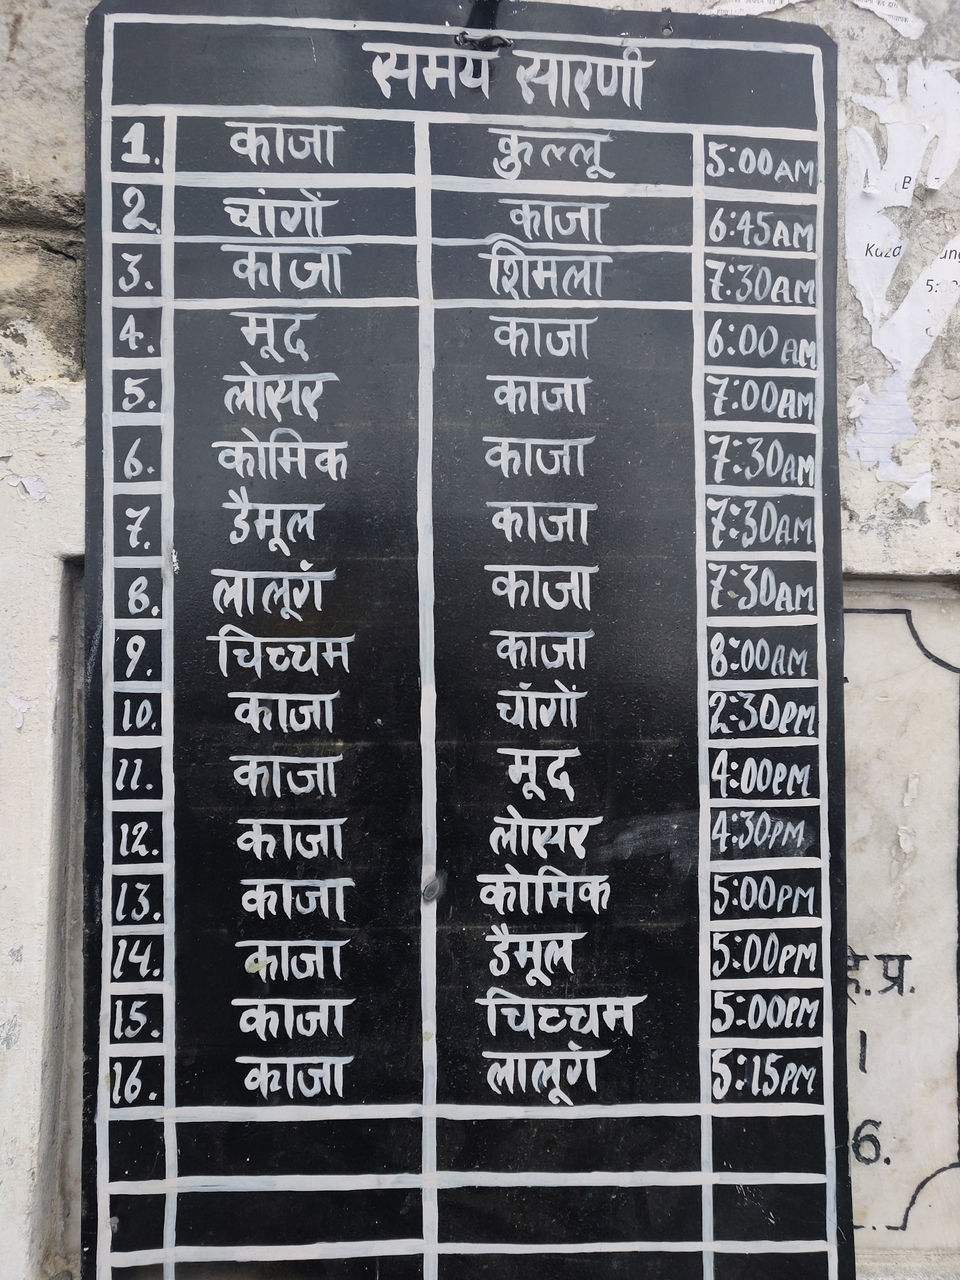 समय सारणी
1. काजा कुल्लू 5:00AM
2. चांगों काजा 6:45AM
3. काजा शिमला 7:30AM
4. मूद काजा 6:00AM
5. लोसर काजा 7:00AM
6. कोमिक काजा 7:30AM
7. डैमूल काजा 7:30AM
8. लालूगं काजा 7:30AM
9. चिच्चम काजा 8:00AM
10. काजा चांगों 2:30PM
11. काजा मूद 4:00PM
12. काजा लोसर 4:30PM
13. काजा कोमिक 5:00PM
14. काजा डैमूल 5:00PM
15. काजा चिच्चम 5:00PM
16. काजा लालूगं 5:15PM
हि.प्र.
6.